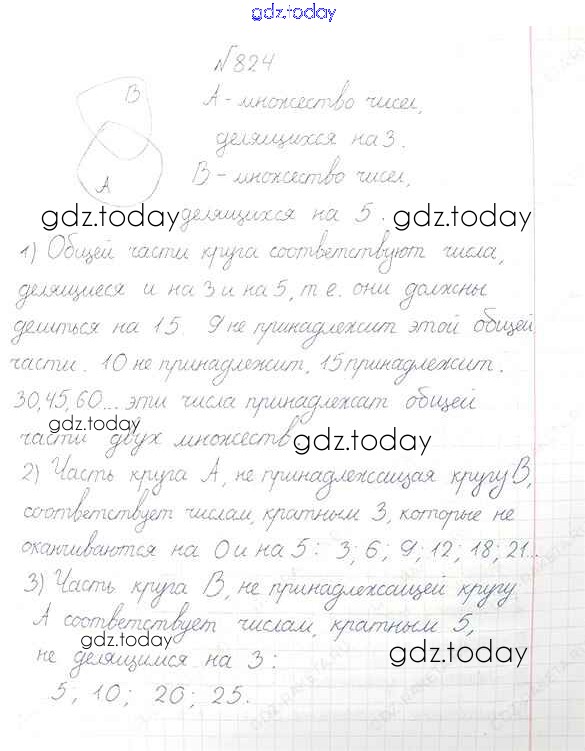 gdz.today
№824
B
A - множество чисел,
делящихся на 3.
A
B - множество чисел,
gdz.today делящихся на 5. gdz.today
1) Общей части круга соответствуют числа,
делящиеся и на 3 и на 5, т.е. они должны
делиться на 15. 9 не принадлежит этой общей
части. 10 не принадлежит, 15 принадлежит.
30, 45, 60... эти числа принадлежат общей
gdz.today
части двух множеств. gdz.today
2) Часть круга A, не принадлежащая кругу B,
соответствует числам, кратным 3, которые не
оканчиваются на 0 и на 5: 3; 6; 9; 12; 18; 21...
3) Часть круга B, не принадлежащей кругу
A соответствует числам, кратным 5,
gdz.today
не делящимся на 3: gdz.today
5, 10; 20; 25.